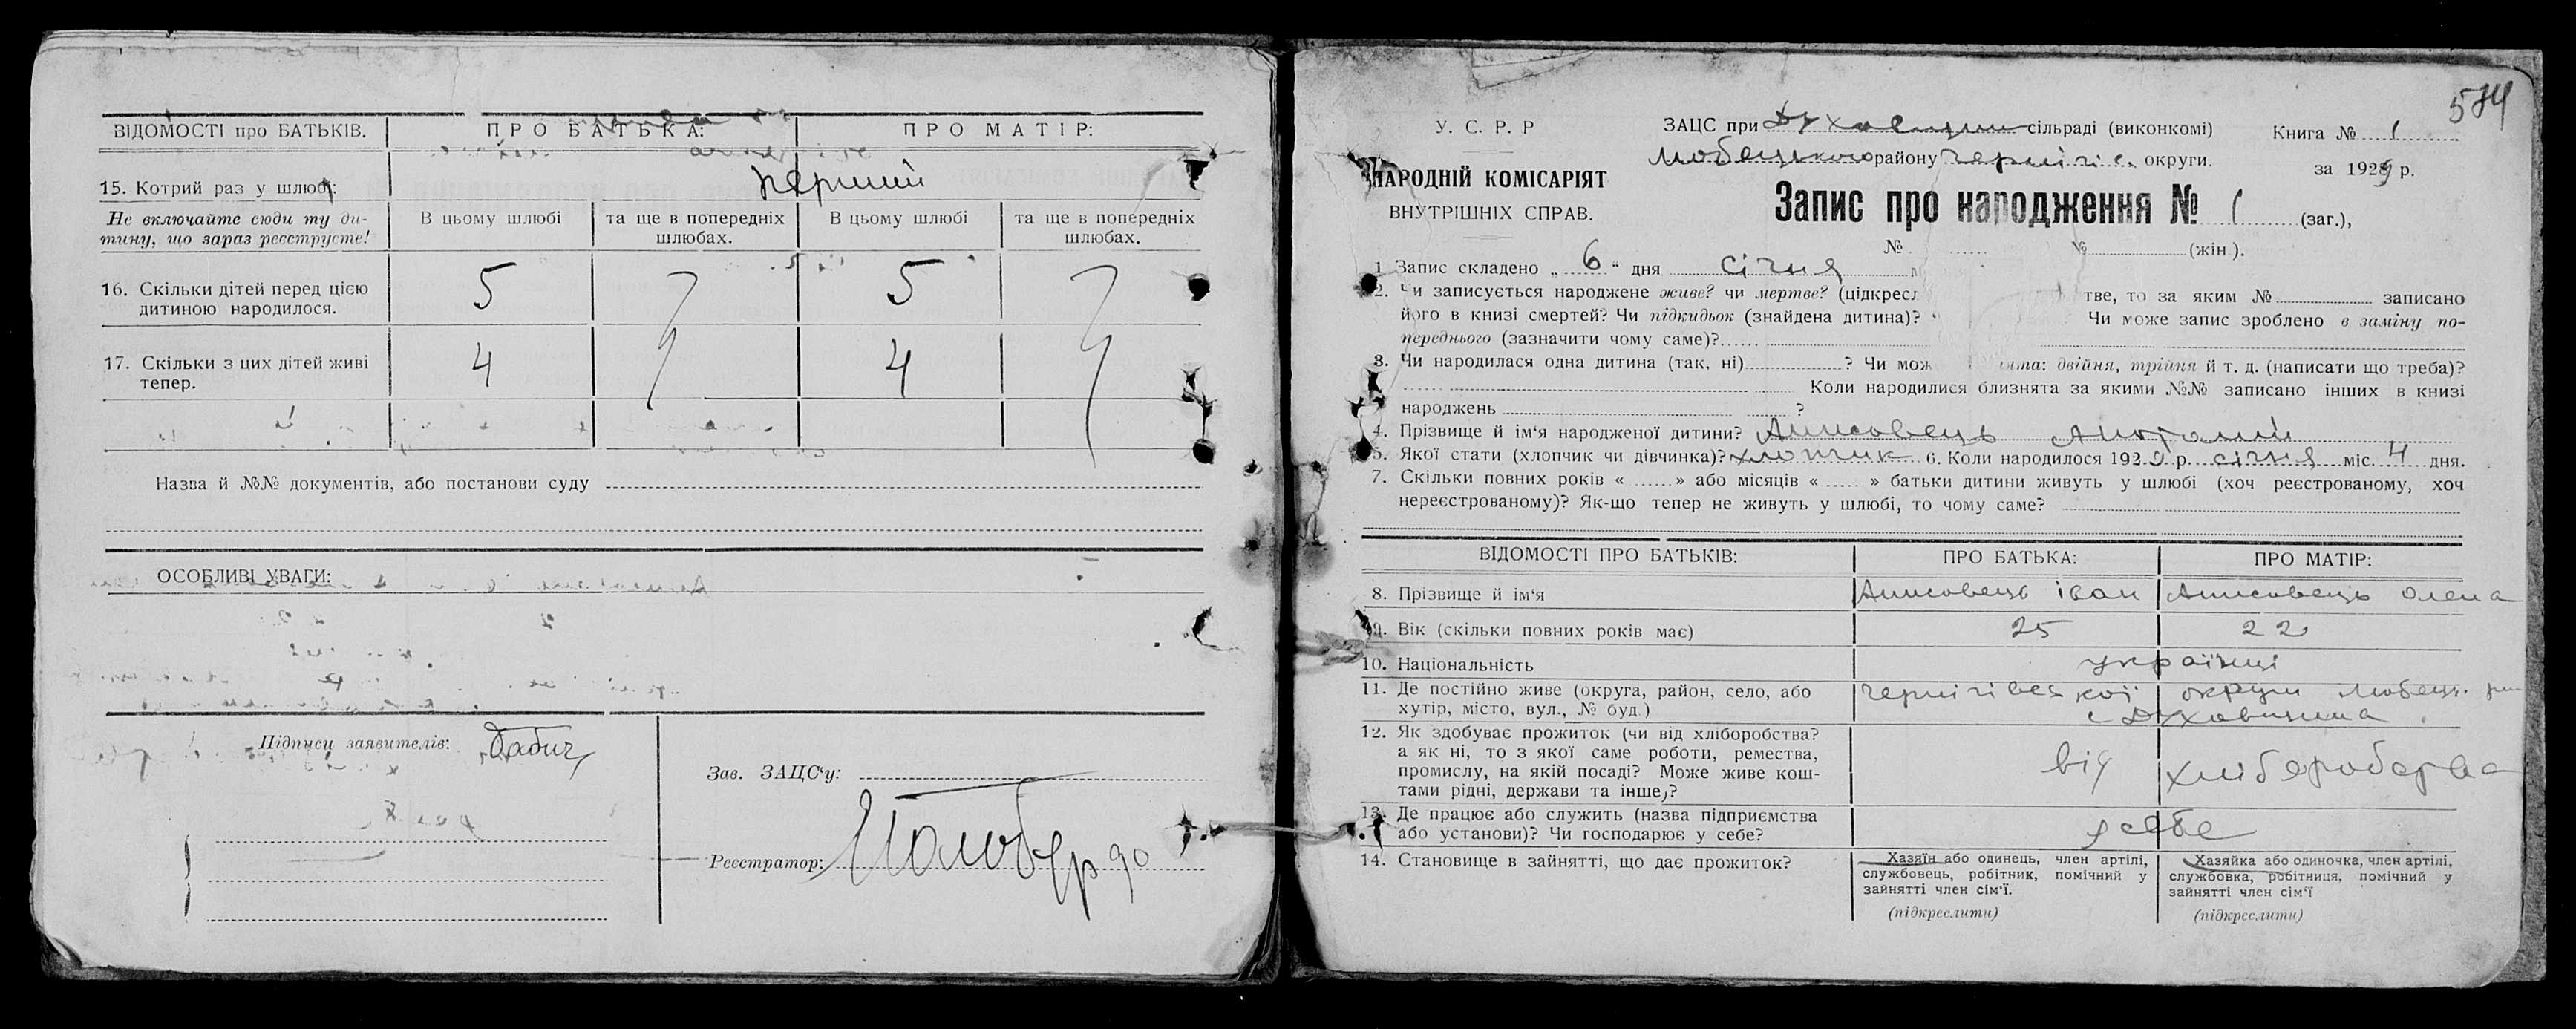 ВІДОМОСТІ про БАТЬКІВ. ПРО БАТЬКА: ПРО МАТІР:
15. Котрий раз у шлюбі: перший
Не включайте сюди ту ди-
тину, що зараз реєструєте!
В цьому шлюбі
та ще в попередніх
шлюбах.
В цьому шлюбі
та ще в попередніх
шлюбах.
16. Скільки дітей перед цією
дитиною народилося.
5 5
17. Скільки з цих дітей живі
тепер.
4 4
Назва й №№ документів, або постанови суду
ОСОБЛИВІ УВАГИ:
Підписи заявителів: Бабич
Зав. ЗАЦС‘у:
Реєстратор:
574
У. С. Р. Р
НАРОДНІЙ КОМІСАРІЯТ
ВНУТРІШНІХ СПРАВ.
ЗАЦС при сільраді (виконкомі)
Любецького району Чернігів. округи.
Книга № 1
за 1929 р.
Запис про народження № 1 (заг.),
№ № (жін).
1 Запис складено „ 6 “ дня січня
2. Чи записується народжене живе? чи мертве? (підкресл тве, то за яким № записано
його в книзі смертей? Чи підкидьок (знайдена дитина)? Чи може запис зроблено в заміну по-
переднього (зазначити чому саме)?
3. Чи народилася одна дитина (так, ні) ? Чи мож ята: двійня, трійня й т. д. (написати що треба)?
Коли народилися близнята за якими №№ записано інших в книзі
народжень ?
4. Прізвище й ім‘я народженої дитини? Анисовець Анотолій
5. Якої стати (хлопчик чи дівчинка)? хлопчик 6. Коли народилося 1929 р. січня міс. 4 дня.
7. Скільки повних років « » або місяців « » батьки дитини живуть у шлюбі (хоч реєстрованому, хоч
нереєстрованому)? Як-що тепер не живуть у шлюбі, то чому саме?
ВІДОМОСТІ ПРО БАТЬКІВ: ПРО БАТЬКА: ПРО МАТІР:
8. Прізвище й ім‘я Анисовець Іван Анисовець Олена
9. Вік (скільки повних років має) 25 22
10. Національність українці
11. Де постійно живе (округа, район, село, або
хутір, місто, вул., № буд.)
Чернігівської округи Любець. рай
с Духовщина
12. Як здобуває прожиток (чи від хліборобства?
а як ні, то з якої саме роботи, ремества,
промислу, на якій посаді? Може живе кош-
тами рідні, держави та інше)?
від хлібороборва
13. Де працює або служить (назва підприємства
або установи)? Чи господарює у себе?
у себе
14. Становище в зайнятті, що дає прожиток?
Хазяїн або одинець, член артілі,
службовець, робітник, помічний у
зайнятті член сім‘ї.
(підкреслити)
Хазяйка або одиночка, член артілі,
службовка, робітниця, помічний у
зайнятті член сім‘ї
(підкреслити)